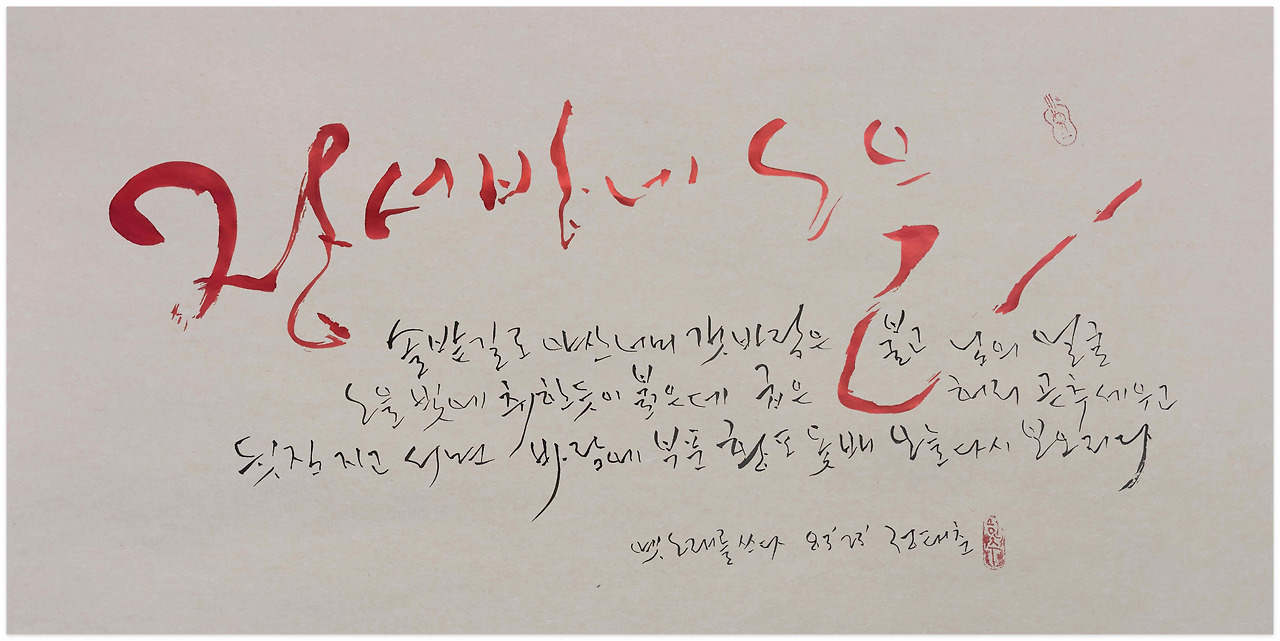 장서방네 노을
솔밭길로 야산 너머 갯바람은 불고 님의 얼굴
노을 빛에 취한듯이 붉은데 굽은 허리 곧추세우고
뒷짐 지고 서면 바람에 부푼 황포 돛배 오늘 다시 보오리다
옛 노래를 쓰다 정태춘